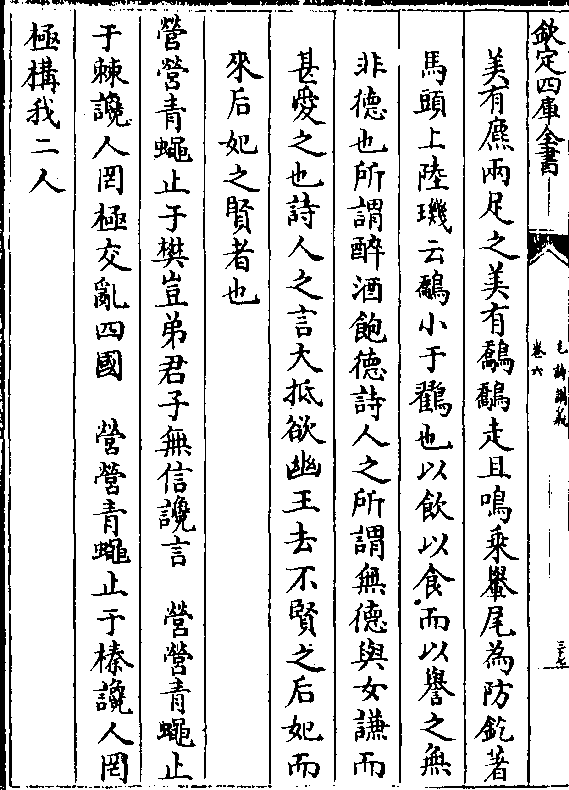 欽定四庫全書
毛詩講義
卷六
三十七
美有麃兩足之美有鷮鷮走且鳴乘轝尾為防釳著
馬頭上陸璣云鷮小于鸐也以飲以食而以譽之無
非德也所謂醉酒飽德詩人之所謂無德與女謙而
甚愛之也詩人之言大抵欲幽王去不賢之后妃而
來后妃之賢者也
營營青蠅止于樊豈弟君子無信讒言　營營青蠅止
于棘讒人罔極交亂四國　營營青蠅止于榛讒人罔
極構我二人